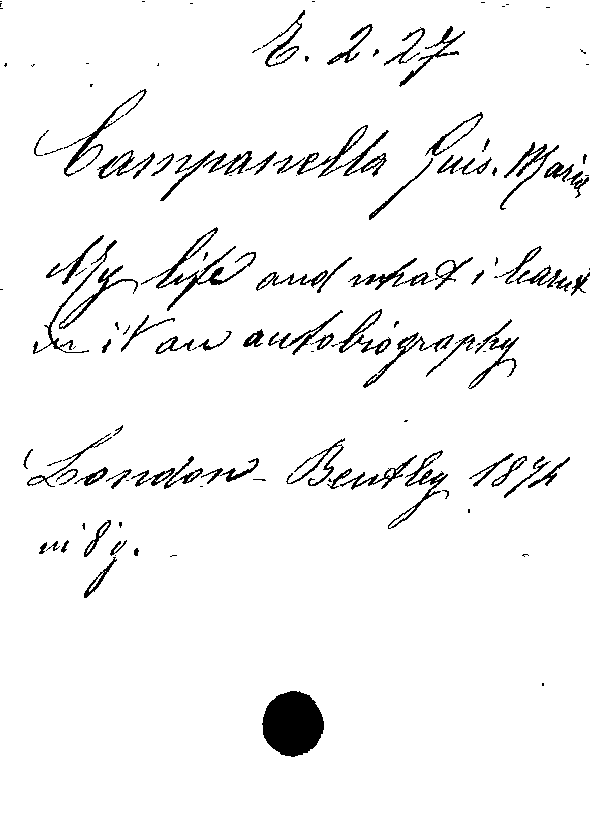 E. 2. 27
Campanella Guis. Maria
My life and what i learnt
in it an autobiography
London - Bentley 1874
in 8 g.